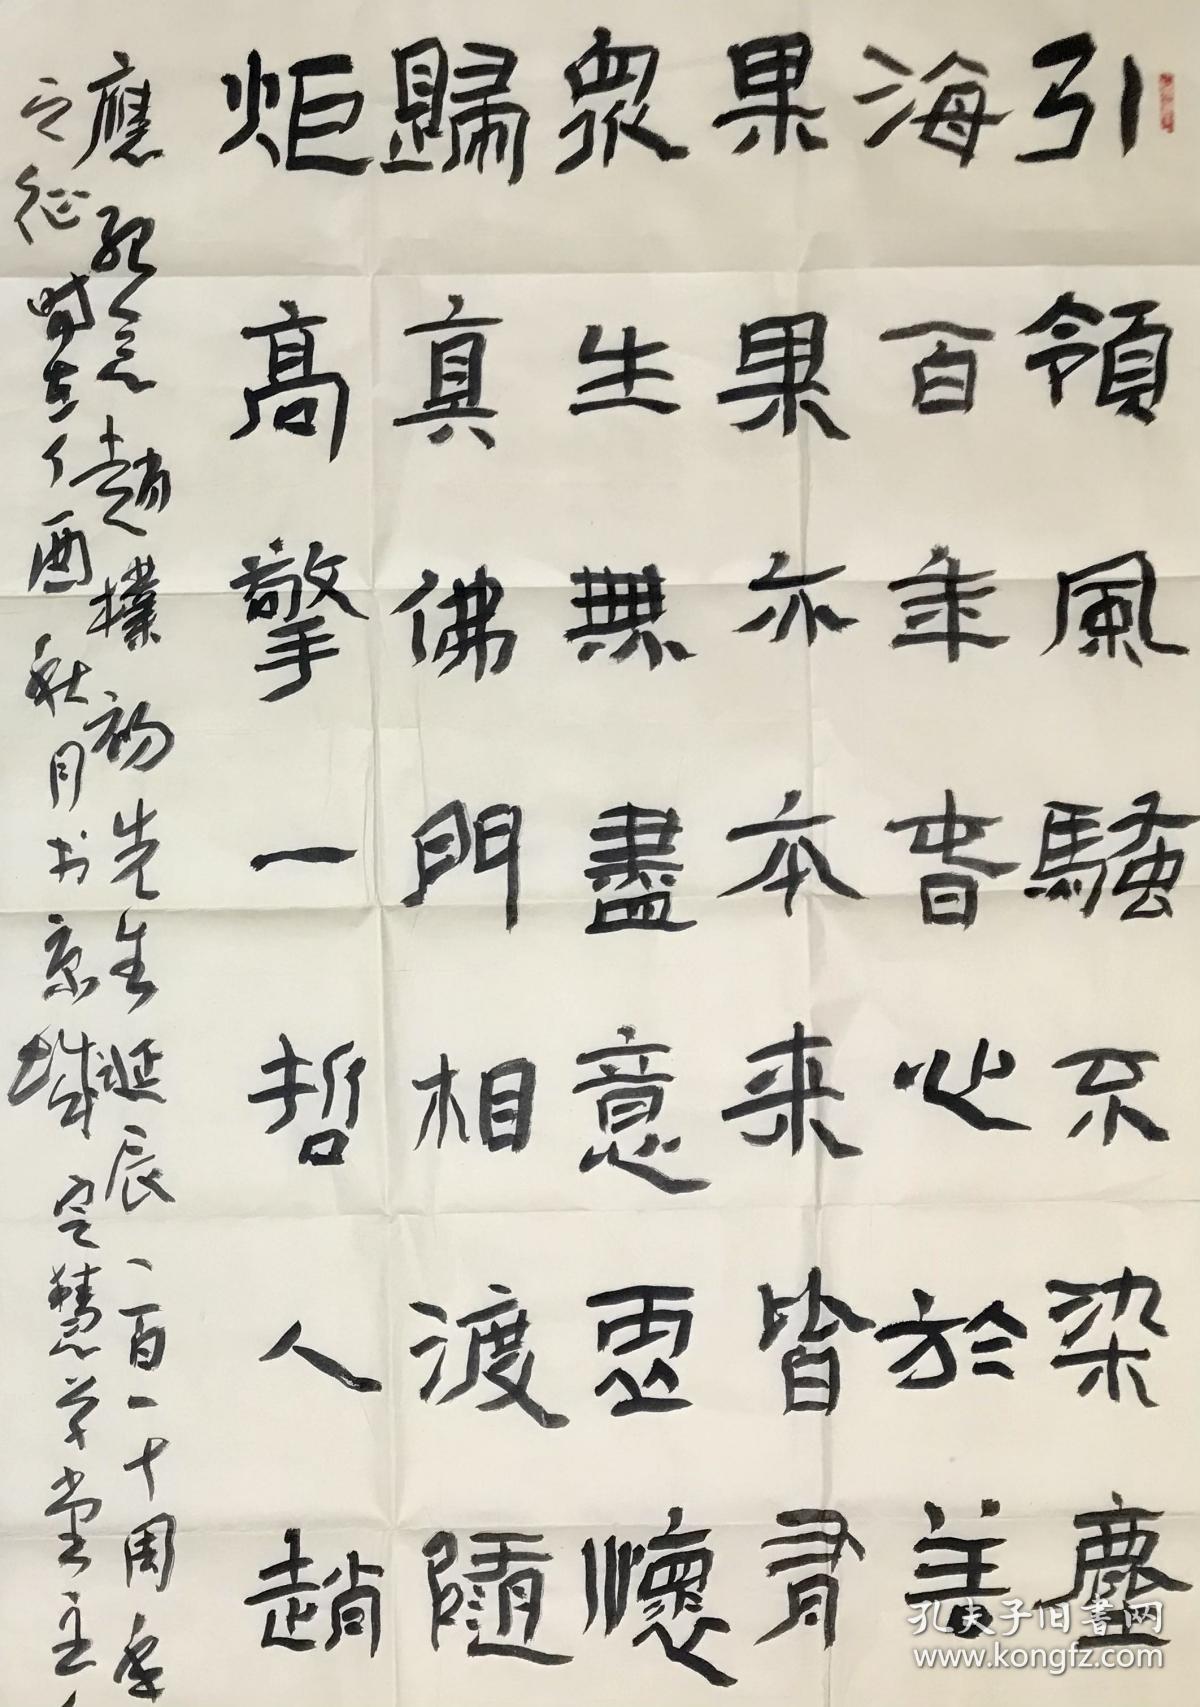 引領風騷不染塵
海百年春心於善
果果亦本来皆有
眾生無盡意靈懷
歸真佛門相渡隨
炬高擎一哲人趙
應紀念趙樸初先生誕辰一百一十周年
之征時在丁酉秋月书京城定慧草堂主
孔夫子旧書网
www.kongfz.com